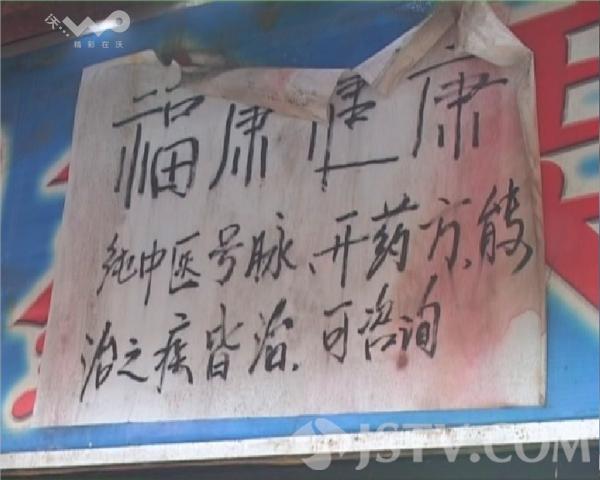 沃...
精彩在沃
福康健康
纯中医号脉、开药方、能
治之疾皆治.可咨询
JSTV.COM